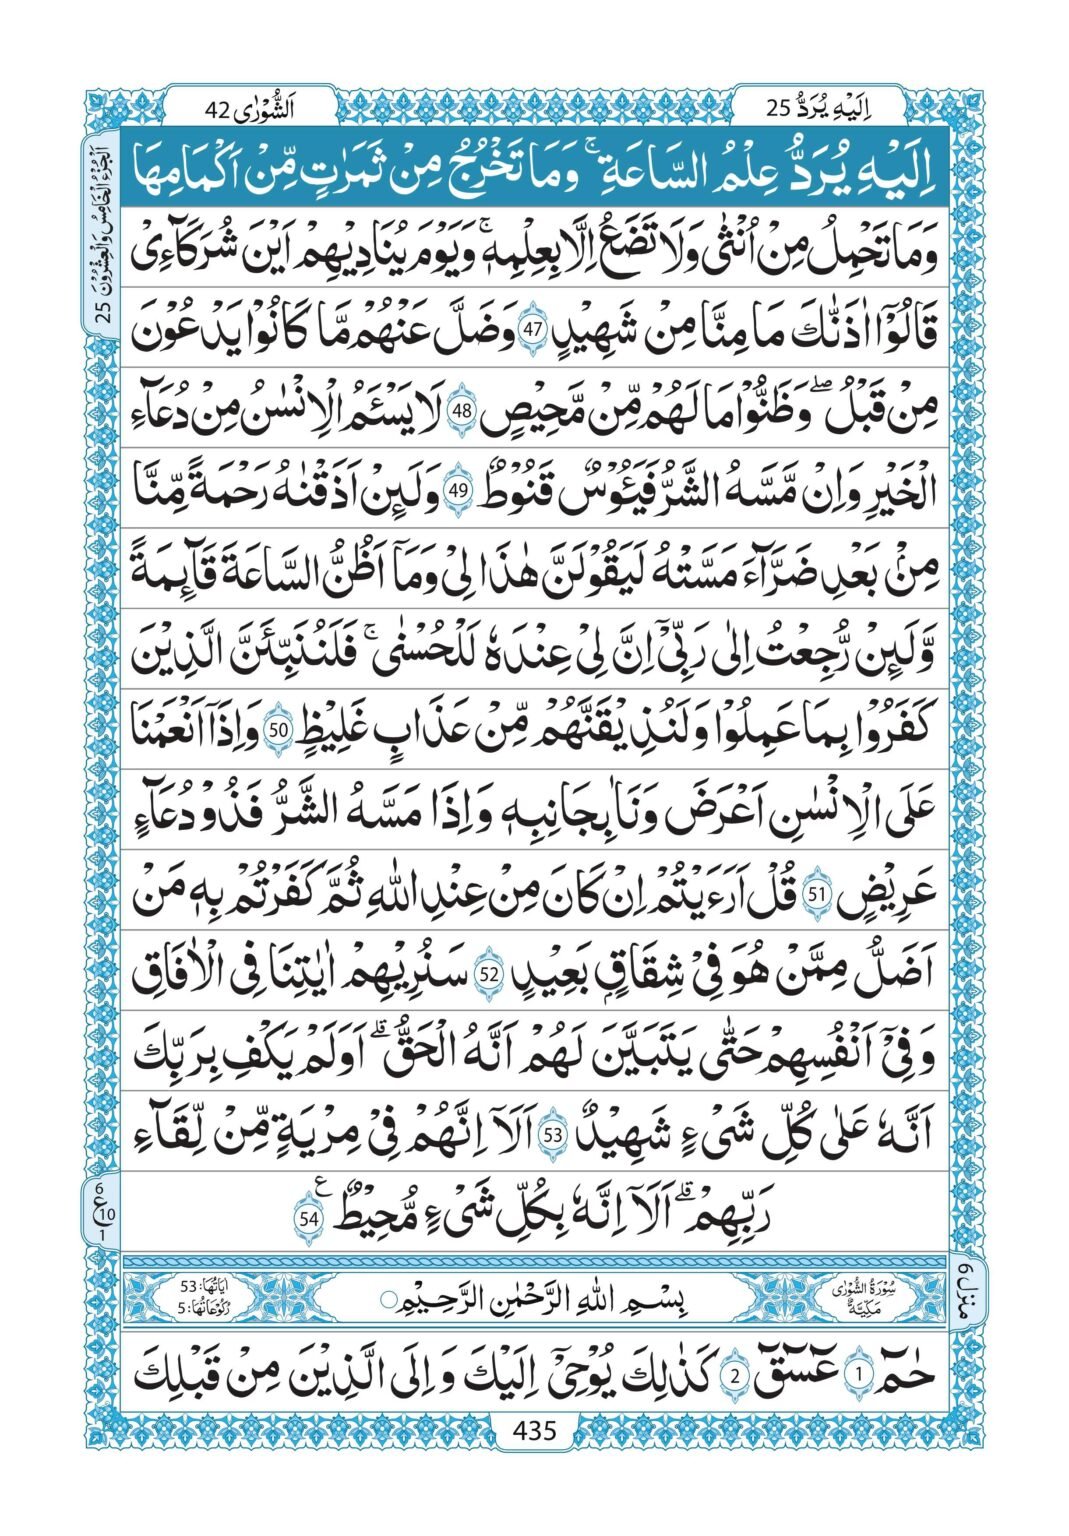 اِلَیْهِ یُرَدُّ 25
اَلشُّوْرٰی 42
اِلَیْهِ یُرَدُّ عِلْمُ السَّاعَةِ ؕ وَمَا تَخْرُجُ مِنْ ثَمَرٰتٍ مِّنْ اَكْمَامِهَا
وَمَا تَحْمِلُ مِنْ اُنْثٰی وَلَا تَضَعُ اِلَّا بِعِلْمِهٖ ۚ وَیَوْمَ یُنَادِیْهِمْ اَیْنَ شُرَكَآءِیْ
قَالُوْۤا اٰذَنّٰكَ مَا مِنَّا مِنْ شَهِیْدٍ 47 وَضَلَّ عَنْهُمْ مَّا كَانُوْا یَدْعُوْنَ
مِنْ قَبْلُ ۖ وَظَنُّوْا مَا لَهُمْ مِّنْ مَّحِیْصٍ 48 لَا یَسْـَٔمُ الْاِنْسٰنُ مِنْ دُعَآءِ
الْخَیْرِ وَاِنْ مَّسَّهُ الشَّرُّ فَیَـُٔوْسٌ قَنُوْطٌ 49 وَلَىِٕنْ اَذَقْنٰهُ رَحْمَةً مِّنَّا
مِنْۢ بَعْدِ ضَرَّآءَ مَسَّتْهُ لَیَقُوْلَنَّ هٰذَا لِیْ وَمَاۤ اَظُنُّ السَّاعَةَ قَآىِٕمَةً
وَّلَىِٕنْ رُّجِعْتُ اِلٰی رَبِّیْۤ اِنَّ لِیْ عِنْدَهٗ لَلْحُسْنٰی ۚ فَلَنُنَبِّئَنَّ الَّذِیْنَ
كَفَرُوْا بِمَا عَمِلُوْا وَلَنُذِیْقَنَّهُمْ مِّنْ عَذَابٍ غَلِیْظٍ 50 وَاِذَاۤ اَنْعَمْنَا
عَلَی الْاِنْسٰنِ اَعْرَضَ وَنَاٰ بِجَانِبِهٖ وَاِذَا مَسَّهُ الشَّرُّ فَذُوْ دُعَآءٍ
عَرِیْضٍ 51 قُلْ اَرَءَیْتُمْ اِنْ كَانَ مِنْ عِنْدِ اللّٰهِ ثُمَّ كَفَرْتُمْ بِهٖ مَنْ
اَضَلُّ مِمَّنْ هُوَ فِیْ شِقَاقٍۭ بَعِیْدٍ 52 سَنُرِیْهِمْ اٰیٰتِنَا فِی الْاٰفَاقِ
وَفِیْۤ اَنْفُسِهِمْ حَتّٰی یَتَبَیَّنَ لَهُمْ اَنَّهُ الْحَقُّ ؕ اَوَلَمْ یَكْفِ بِرَبِّكَ
اَنَّهٗ عَلٰی كُلِّ شَیْءٍ شَهِیْدٌ 53 اَلَاۤ اِنَّهُمْ فِیْ مِرْیَةٍ مِّنْ لِّقَآءِ
رَبِّهِمْ ؕ اَلَاۤ اِنَّهٗ بِكُلِّ شَیْءٍ مُّحِیْطٌ 54
سُوْرَةُ الشُّوْرٰی
مَكِّیَّةٌ
بِسْمِ اللّٰهِ الرَّحْمٰنِ الرَّحِیْمِ
اٰیَاتُهَا: 53
رُكُوْعَاتُهَا: 5
حٰمٓ 1 عٓسٓقٓ 2 كَذٰلِكَ یُوْحِیْۤ اِلَیْكَ وَاِلَی الَّذِیْنَ مِنْ قَبْلِكَ
435
اَلْجُزْءُ الْخَامِسُ وَالْعِشْرُوْنَ 25
6
ع 10
1
منزل 6